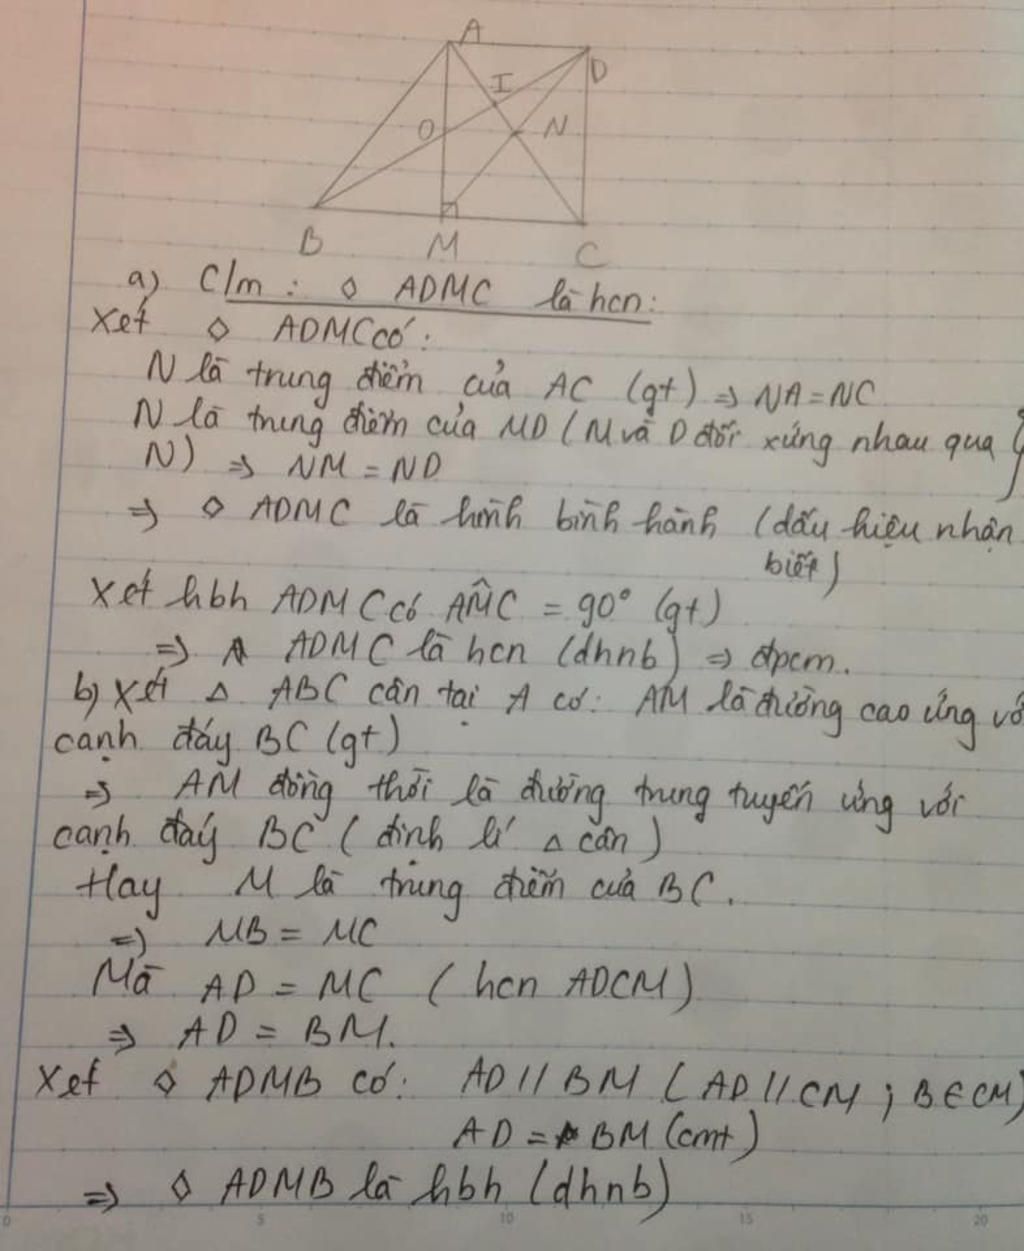 A
D
I
O
N
B
M
C
a) C/m : ◊ ADMC là hcn:
Xét ◊ ADMC có:
N là trung điểm của AC (gt) => NA = NC
N là trung điểm của MD (M và D đối xứng nhau qua
N) => NM = ND
=> ◊ ADMC là hình bình hành (dấu hiệu nhận
biết)
Xét hbh ADMC có AM̂C = 90° (gt)
=> ADMC là hcn (dhnb) => đpcm.
b) Xét △ ABC cân tại A có: AM là đường cao ứng vớ
cạnh đáy BC (gt)
=> AM đồng thời là đường trung tuyến ứng với
cạnh đáy BC (định lí △ cân)
Hay M là trung điểm của BC.
=> MB = MC
Mà AD = MC (hcn ADCM)
=> AD = BM.
Xét ◊ ADMB có: AD // BM (AD // CM ; B ∈ CM)
AD = BM (cmt)
=> ◊ ADMB là hbh (dhnb)
0 5 10 15 20